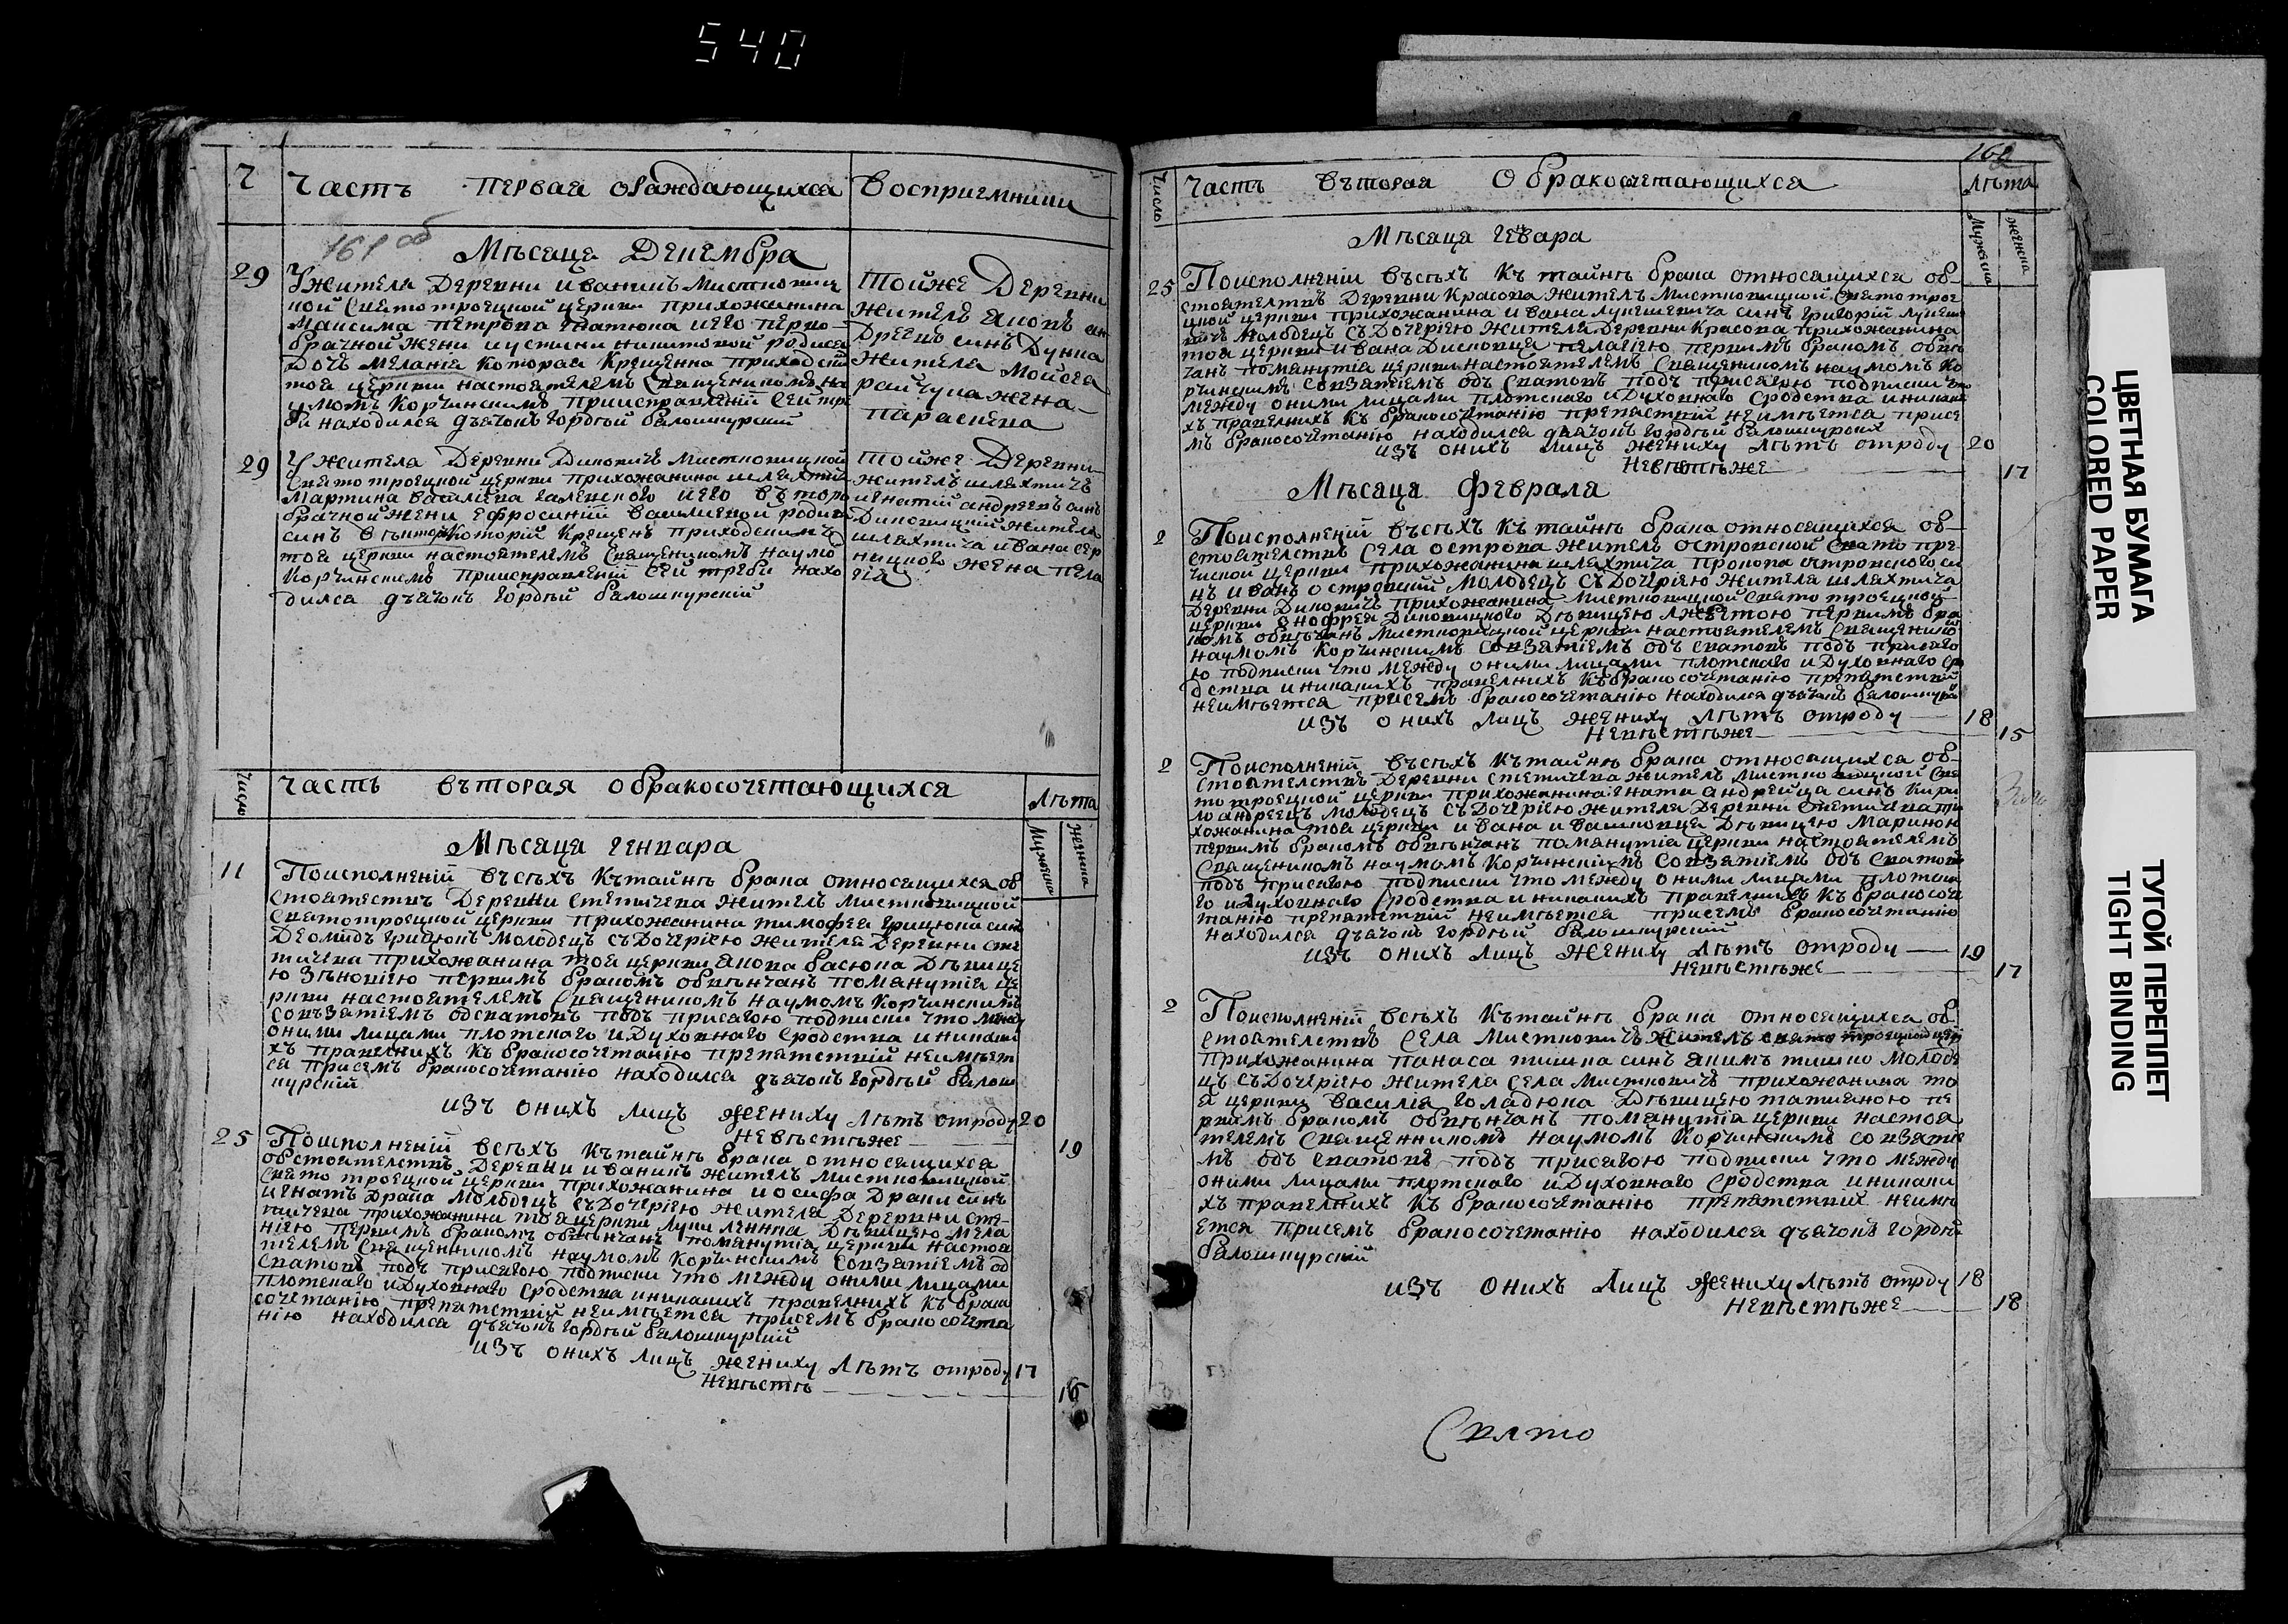 540
Ч Часть первая ораждающихся Восприемники
161 об
Мѣсаца Декембра
29 У жителя Деревни Иваникъ Мистковиц
кой Свято троецкой церкви прихожанина
Максима Петрова Гнатюка и его перво-
брачной жени Иустини Никитовой родися
дочъ Меланія которая Крещенна приходски
тоя церкви настоятелемъ Священикомъ На
умомъ Корчинскимъ приисправленій сей тре
би находился дьячокъ Гордѣй Балошкурскій
Той же Деревни
житель Яковъ ан
дреевъ синъ Думка
жителя Мойсея
райчука жена
Параскева
29 У жителя Деревни Диковичъ Мистковицкой
Свято троецкой церкви прихожанина шляхтича
Мартина Василіева Галенского и его въторо
брачной жени Ефросиніи Васильевой родися
синъ Вѣкторъ Которій Крещенъ приходскимъ
тоя церкви настоятелемъ Священикомъ Наумо
Корчинскимъ приисправленій сей треби нахо
дился дьячокъ Гордѣй Балошкурскій
Той же Деревни
житель шляхтичъ
Игнатій андреевъ синъ
Диковицкій жителя
шляхтича Ивана Сер
ницкого жена Пела
гія
Число Часть въторая о бракосочетающихся Лѣта
Мужеска Женска
Мѣсаца Генвара
11 По исполненій въсѣхъ къ тайнѣ брака относящихся об
стоятелствъ Деревни Стетичева жителъ Мистковицкой
Святотроецкой церкви прихожанина Тимофея Грицюка синъ
Деомидъ Грицюкъ молодецъ съ дочерію жителя Деревни Сте
тичева прихожанина тоя церкви Якова Басюка дѣвице
ю Зѣновіею первимъ бракомъ обвѣнчанъ помянутія це
ркви настоятелемъ Священикомъ Наумомъ Корчинскимъ
сопъзятіемъ одскатокъ подъ присягою подписки что между
оними лицами плотскаго и духовнаго сродства и никаки
хъ правелнихъ къ бракосочетанію препятствій неимѣет
ся присемъ бракосочетанію находился дьячокъ Гордѣй Балош
курскій
изъ онихъ лицъ жениху лѣтъ отроду 20
Невѣстѣже 19
25 По исполненій всѣхъ къ тайнѣ брака относящихся
обстоятелствъ Деревни Иваникъ жителъ Мистковицкой
Свято троецкой церкви прихожанина Иосифа Драпи синъ
Игнатъ Драпа молодецъ съ дочерію жителя Деревни Сте-
тичева прихожанина тоя церкви Луки Левпка дѣвицею Мела
ніею первимъ бракомъ обвѣнчанъ помянутія церкви настоя
телемъ Священикомъ Наумомъ Корчинскимъ сопзятіемъ од
скатокъ подъ присягою подписки что между оними лицами
плотскаго и духовнаго сродства иникакихъ правелнихъ къ брако
сочетанію препятствій неимѣется присемъ бракосочета
нію находился дьячокъ Гордѣй Балошкурскій
изъ онихъ лицъ жениху лѣтъ отроду 17
Невѣстѣ 16
162
Число Часть въторая О бракосочетающихся Лѣта
Мужеска Женска
Мѣсаца Генвара
25 По исполненіи въсѣхъ къ тайнѣ брака относящихся об-
стоятелствъ Деревни Красова жителъ Мистковицкой Свято трое
цкой церкви прихожанина Ивана Лукашевича синъ Григорій Лукаше
вичъ молодецъ съ дочерію жителя Деревни Красова прихожанина
тоя церкви Ивана Дисковца Пелагіею первимъ бракомъ обвѣн
чанъ помянутія церкви настоятелемъ Священикомъ Наумомъ Ко
рчинскимъ сопзятіемъ одъ скатокъ подъ присягою подписки что
между оними лицами плотскаго и духовнаго сродства и никаки
хъ правелнихъ къ бракосочетанію препятствій неимѣется присе
мъ бракосочетанію находился дьячокъ Гордѣй Балошкурскій
изъ онихъ лицъ жениху лѣтъ отроду 20
Невѣстѣже 17
Мѣсаца Февраля
2 По исполненій въсѣхъ къ тайнѣ брака относящихся об-
стоятелствъ Села Острова жителъ Островской Свято пре
чиской церкви прихожанина шляхтича Прокопа Островского си
нъ Иванъ Островскій молодецъ съ дочерію жителя шляхтича
Деревни Диковичъ прихожанина Мистковицкой Свято троецкой
церкви Онофрея Диковицкого дѣвицею Лжветою первимъ бра
комъ обвѣнчанъ Мистковицкой церкви настоятелемъ Священико
Наумомъ Корчинскимъ сопзятіемъ одъ скатокъ подъ присяго
ю подписки что между оними лицами плотскаго и духовнаго сро
дства иникакихъ правелнихъ къ бракосочетанію препятствій
неимѣется присемъ бракосочетанію находился дьячокъ Балошкурскій
изъ онихъ лицъ жениху лѣтъ отроду 18
Невѣстѣже 15
2 По исполненій въсѣхъ къ тайнѣ брака относящихся об-
стоятелствъ Деревни Стетичева жителъ Мистковицкой Свя
то троецкой церкви прихожанина Игната Андрейца синъ Кири
ло Андреецъ молодецъ съ дочерію жителя Деревни Стетичева при
хожанина тоя церкви Ивана Ивашковца дѣвицею Мариною
первимъ бракомъ обвѣнчанъ помянутія церкви настоятелемъ
Священикомъ Наумомъ Корчинскимъ сопзятіемъ одъ скатокъ
подъ присягою подписки что между оними лицами плотска
го и духовнаго сродства и никакихъ правелнихъ къ бракосоче
танію препятствій неимѣется присемъ бракосочетанію
находился дьячокъ Гордѣй Балошкурскій
изъ онихъ лицъ жениху лѣтъ отроду 19
Невѣстѣже 17
2 По исполненій всѣхъ къ тайнѣ брака относящихся об
стоятелствъ Села Мистковичъ жителъ Свято троецкой цер
прихожанина Панаса Тишка синъ Якимъ Тишко молоде
цъ съ дочерію жителя Села Мистковичъ прихожанина то
я церкви Василія Голадюка дѣвицею Татианою пе
рвимъ бракомъ обвѣнчанъ помянутія церкви настоя
телемъ Священникомъ Наумомъ Корчинскимъ сопзятіе
мъ одъ скатокъ подъ присягою подписки что между
оними лицами плотскаго и духовнаго сродства иникаки
хъ правелнихъ къ бракосочетанію препятствий неимѣ
ется присемъ бракосочетанію находился дьячокъ Гордѣй
Балошкурскій
изъ онихъ лицъ жениху лѣтъ отроду 18
Невѣстѣже 18
Свято
ЦВЕТНАЯ БУМАГА
COLORED PAPER
ТУГОЙ ПЕРЕПЛЕТ
TIGHT BINDING